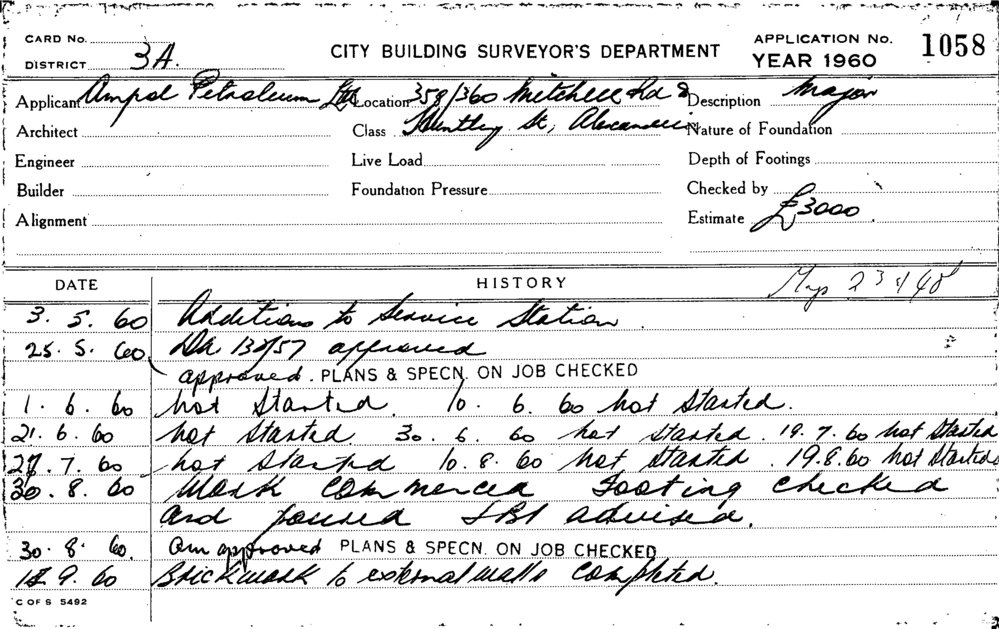 CARD No.
DISTRICT 3A.
CITY BUILDING SURVEYOR'S DEPARTMENT
APPLICATION No. 1058
YEAR 1960
Applicant Ampol Petroleum Ltd Location 358/360 Mitchell Rd & Description Major
Architect Class Huntley St, Alexandria Nature of Foundation
Engineer Live Load Depth of Footings
Builder Foundation Pressure Checked by
Alignment Estimate £3000
DATE HISTORY
3. 5. 60 Additions to Service Station
25. 5. 60 DA approved
approved. PLANS & SPECN. ON JOB CHECKED
1. 6. 60 not started. 10. 6. 60 not started.
21. 6. 60 not started. 30. 6. 60 not started. 19. 7. 60 not started
27. 7. 60 not started 10. 8. 60 not started. 19.8.60 not started
8. 60 Work commenced Footing checked
and poured advised.
30. 8. 60. approved PLANS & SPECN. ON JOB CHECKED
9. 60 Brickwork to external walls completed.
C OF S 5492